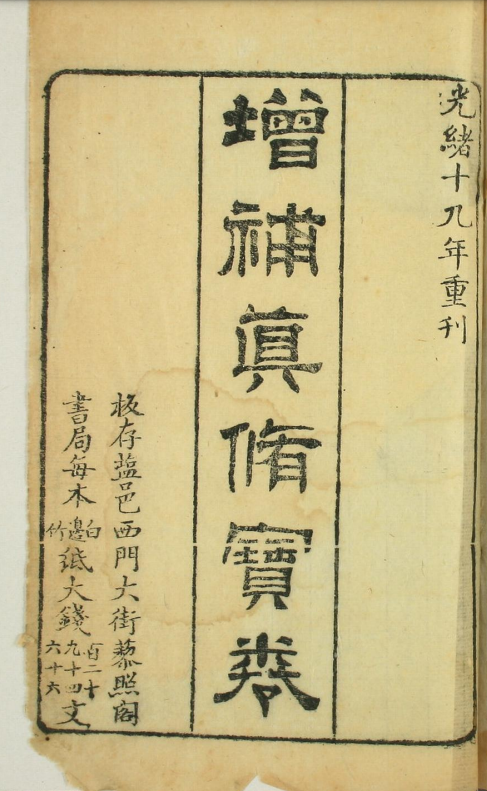 光緒十九年重刊
增補真脩寶卷
板存盐邑西門大街藜照阁
書局每本白邊竹紙大錢百二十九十四六十六文